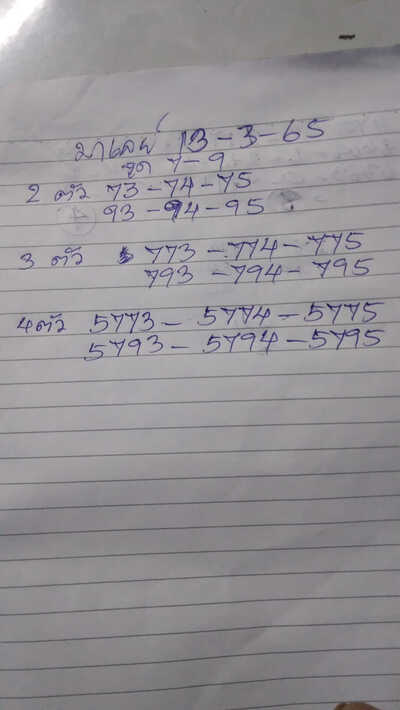 มาเลย์ 13-3-65
ชุด 7-9
2 ตัว 73-74-75
93-94-95
3 ตัว 773-774-775
793-794-795
4ตัว 5773-5774-5775
5793-5794-5795